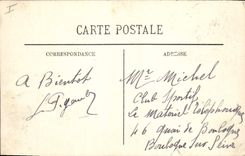 I
CARTE POSTALE
CORRESPONDANCE
ADRESSE
A Bientot
Mr Michel
Club Sportif
Le Matériel Téléphonique
46 Quai de Boulogne
Boulogne sur Seine